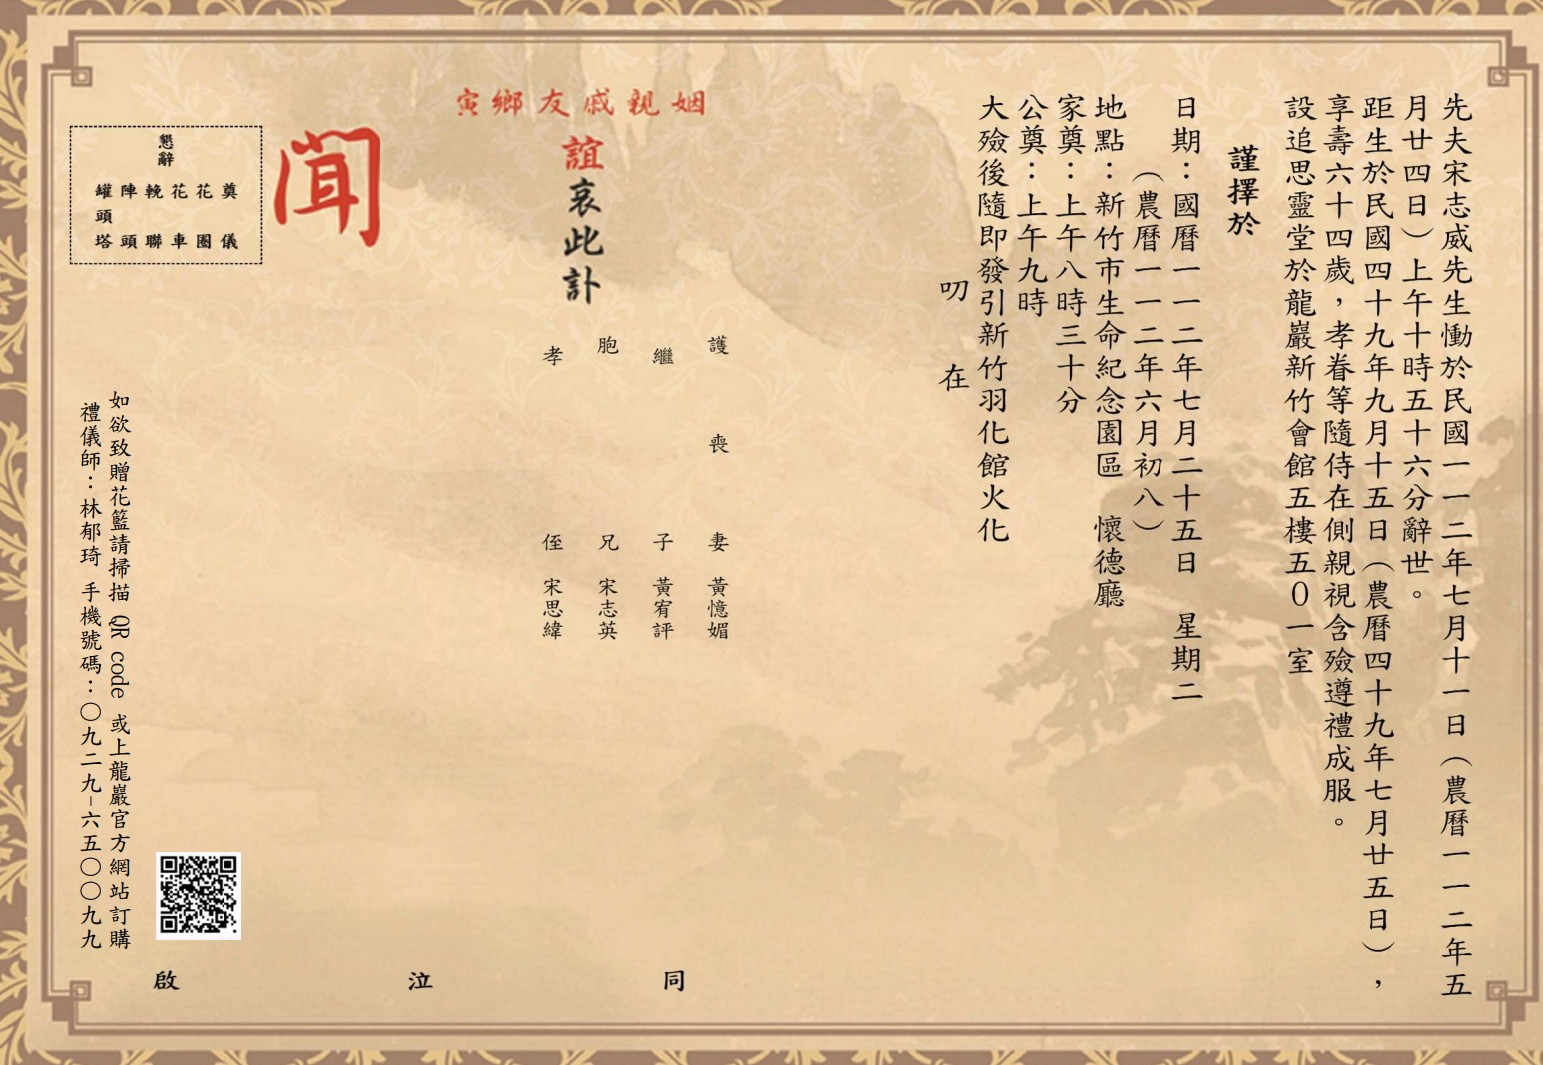 先夫宋志威先生慟於民國一一二年七月十一日（農曆一一二年五
月廿四日）上午十時五十六分辭世。
距生於民國四十九年九月十五日（農曆四十九年七月廿五日），
享壽六十四歲，孝眷等隨侍在側親視含殮遵禮成服。
設追思靈堂於龍巖新竹會館五樓五0一室
謹擇於
日期：國曆一一二年七月二十五日 星期二
（農曆一一二年六月初八）
地點：新竹市生命紀念園區 懷德廳
家奠：上午八時三十分
公奠：上午九時
大殮後隨即發引新竹羽化館火化
叨在
姻親戚友鄉寅
誼哀此訃
聞
護喪妻 黃憶媚
繼子 黃宥評
胞兄 宋志英
孝侄 宋思緯
同泣啟
懇辭
奠儀
花圈
花車
輓聯
陣頭
罐頭塔
如欲致贈花籃請掃描 QR code 或上龍巖官方網站訂購
禮儀師：林郁琦 手機號碼：〇九二九-六五〇〇九九